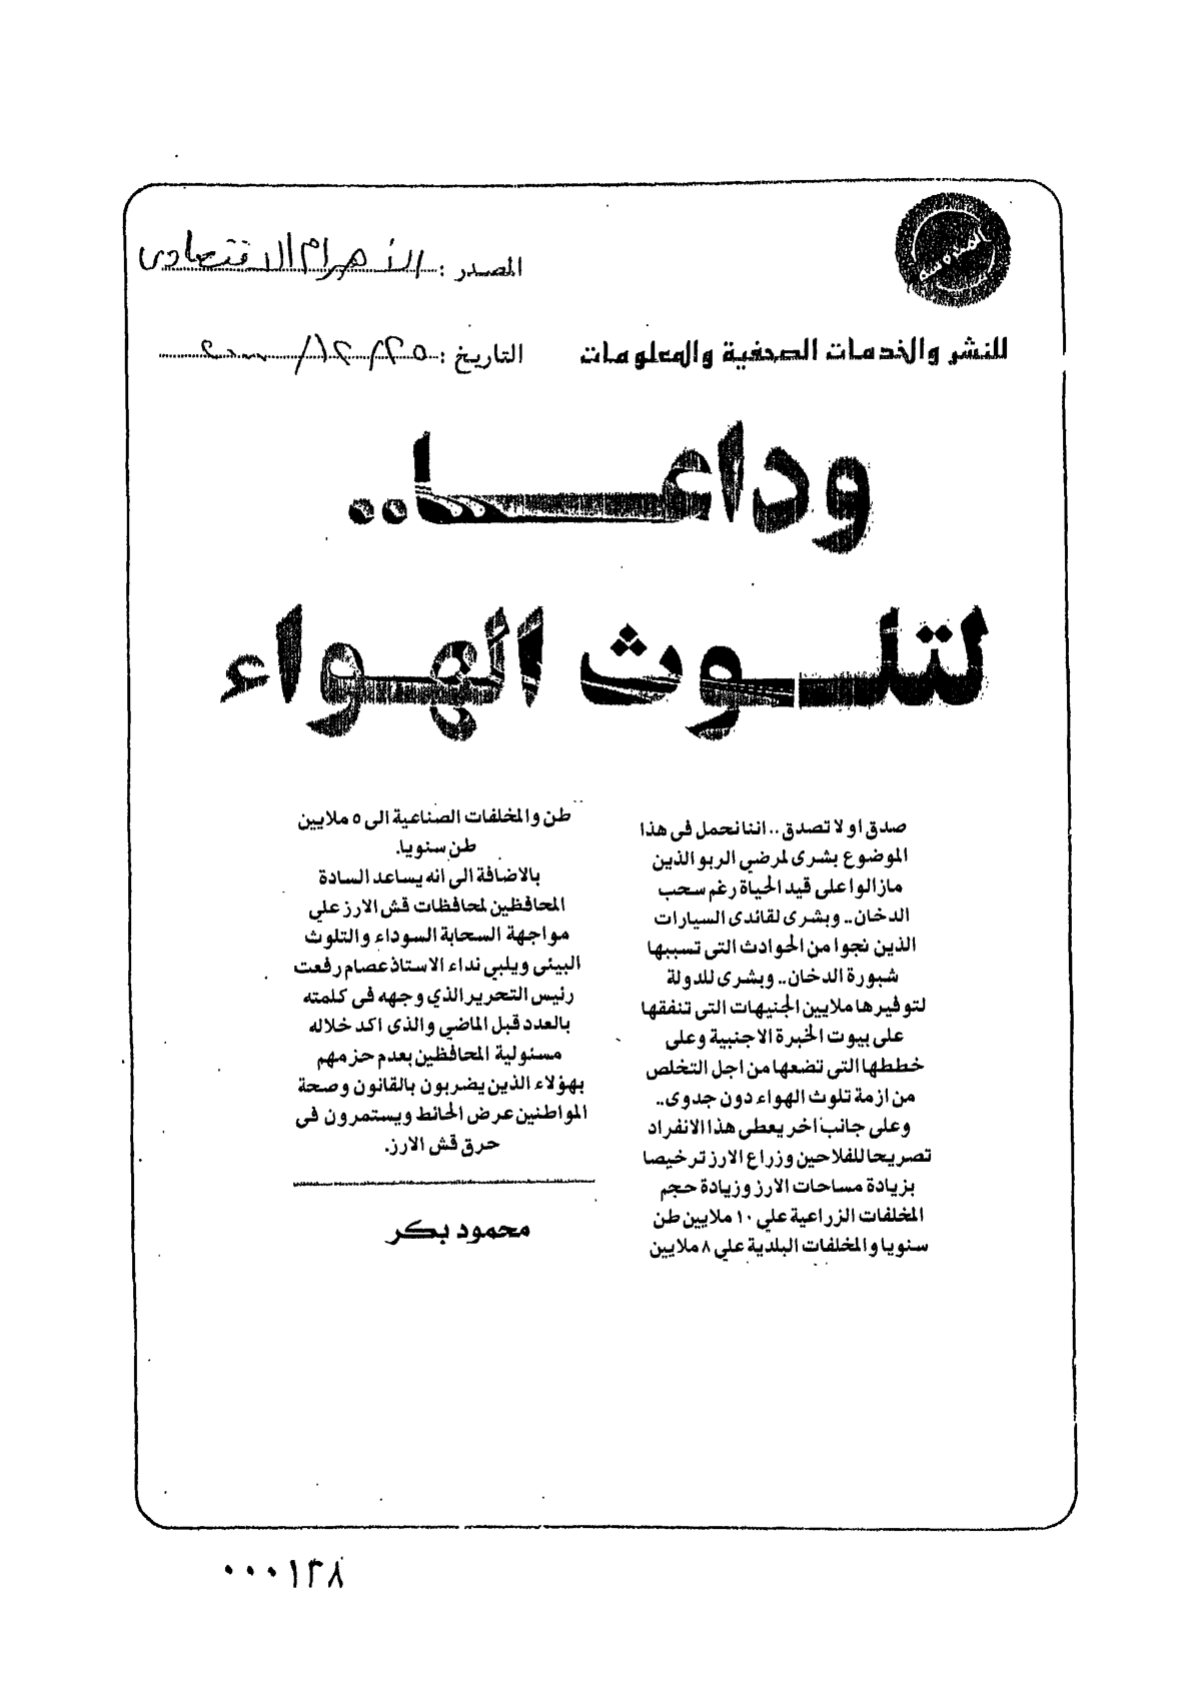 المصدر : الأهرام الاقتصادى
للنشر والخدمات الصحفية والمعلومات
التاريخ : ٢٥/١٢/٢٠٠٠
وداعــــا..
لتلــوث الهـواء
صدق او لا تصدق .. اننا نحمل فى هذا
الموضوع بشرى لمرضي الربو الذين
مازالوا على قيد الحياة رغم سحب
الدخان.. وبشرى لقائدى السيارات
الذين نجوا من الحوادث التى تسببها
شبورة الدخان.. وبشرى للدولة
لتوفيرها ملايين الجنيهات التى تنفقها
على بيوت الخبرة الاجنبية وعلى
خططها التى تضعها من اجل التخلص
من ازمة تلوث الهواء دون جدوى..
وعلى جانب اخر يعطى هذا الانفراد
تصريحا للفلاحين وزراع الارز ترخيصا
بزيادة مساحات الارز وزيادة حجم
المخلفات الزراعية علي ١٠ ملايين طن
سنويا والمخلفات البلدية علي ٨ ملايين
طن والمخلفات الصناعية الى ٥ ملايين
طن سنويا.
بالاضافة الى انه يساعد السادة
المحافظين لمحافظات قش الارز علي
مواجهة السحابة السوداء والتلوث
البيئى ويلبي نداء الاستاذ عصام رفعت
رئيس التحرير الذي وجهه فى كلمته
بالعدد قبل الماضي والذى اكد خلاله
مسئولية المحافظين بعدم حزمهم
بهؤلاء الذين يضربون بالقانون وصحة
المواطنين عرض الحائط ويستمرون فى
حرق قش الارز.
محمود بكر
٠٠٠١٣٨